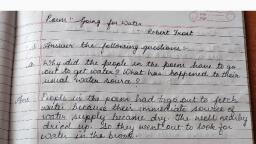 Poem:- Going for Water
- Robert Frost
Answer the following questions:-
Why did the people in the poem have to go
out to get water? What was happened to their
usual water source?
Ans: People in the poem had to go out to fetch
water because their immediate source of
water supply became dry. The well nearby
dried up. So they went out to look for
water in the brook.